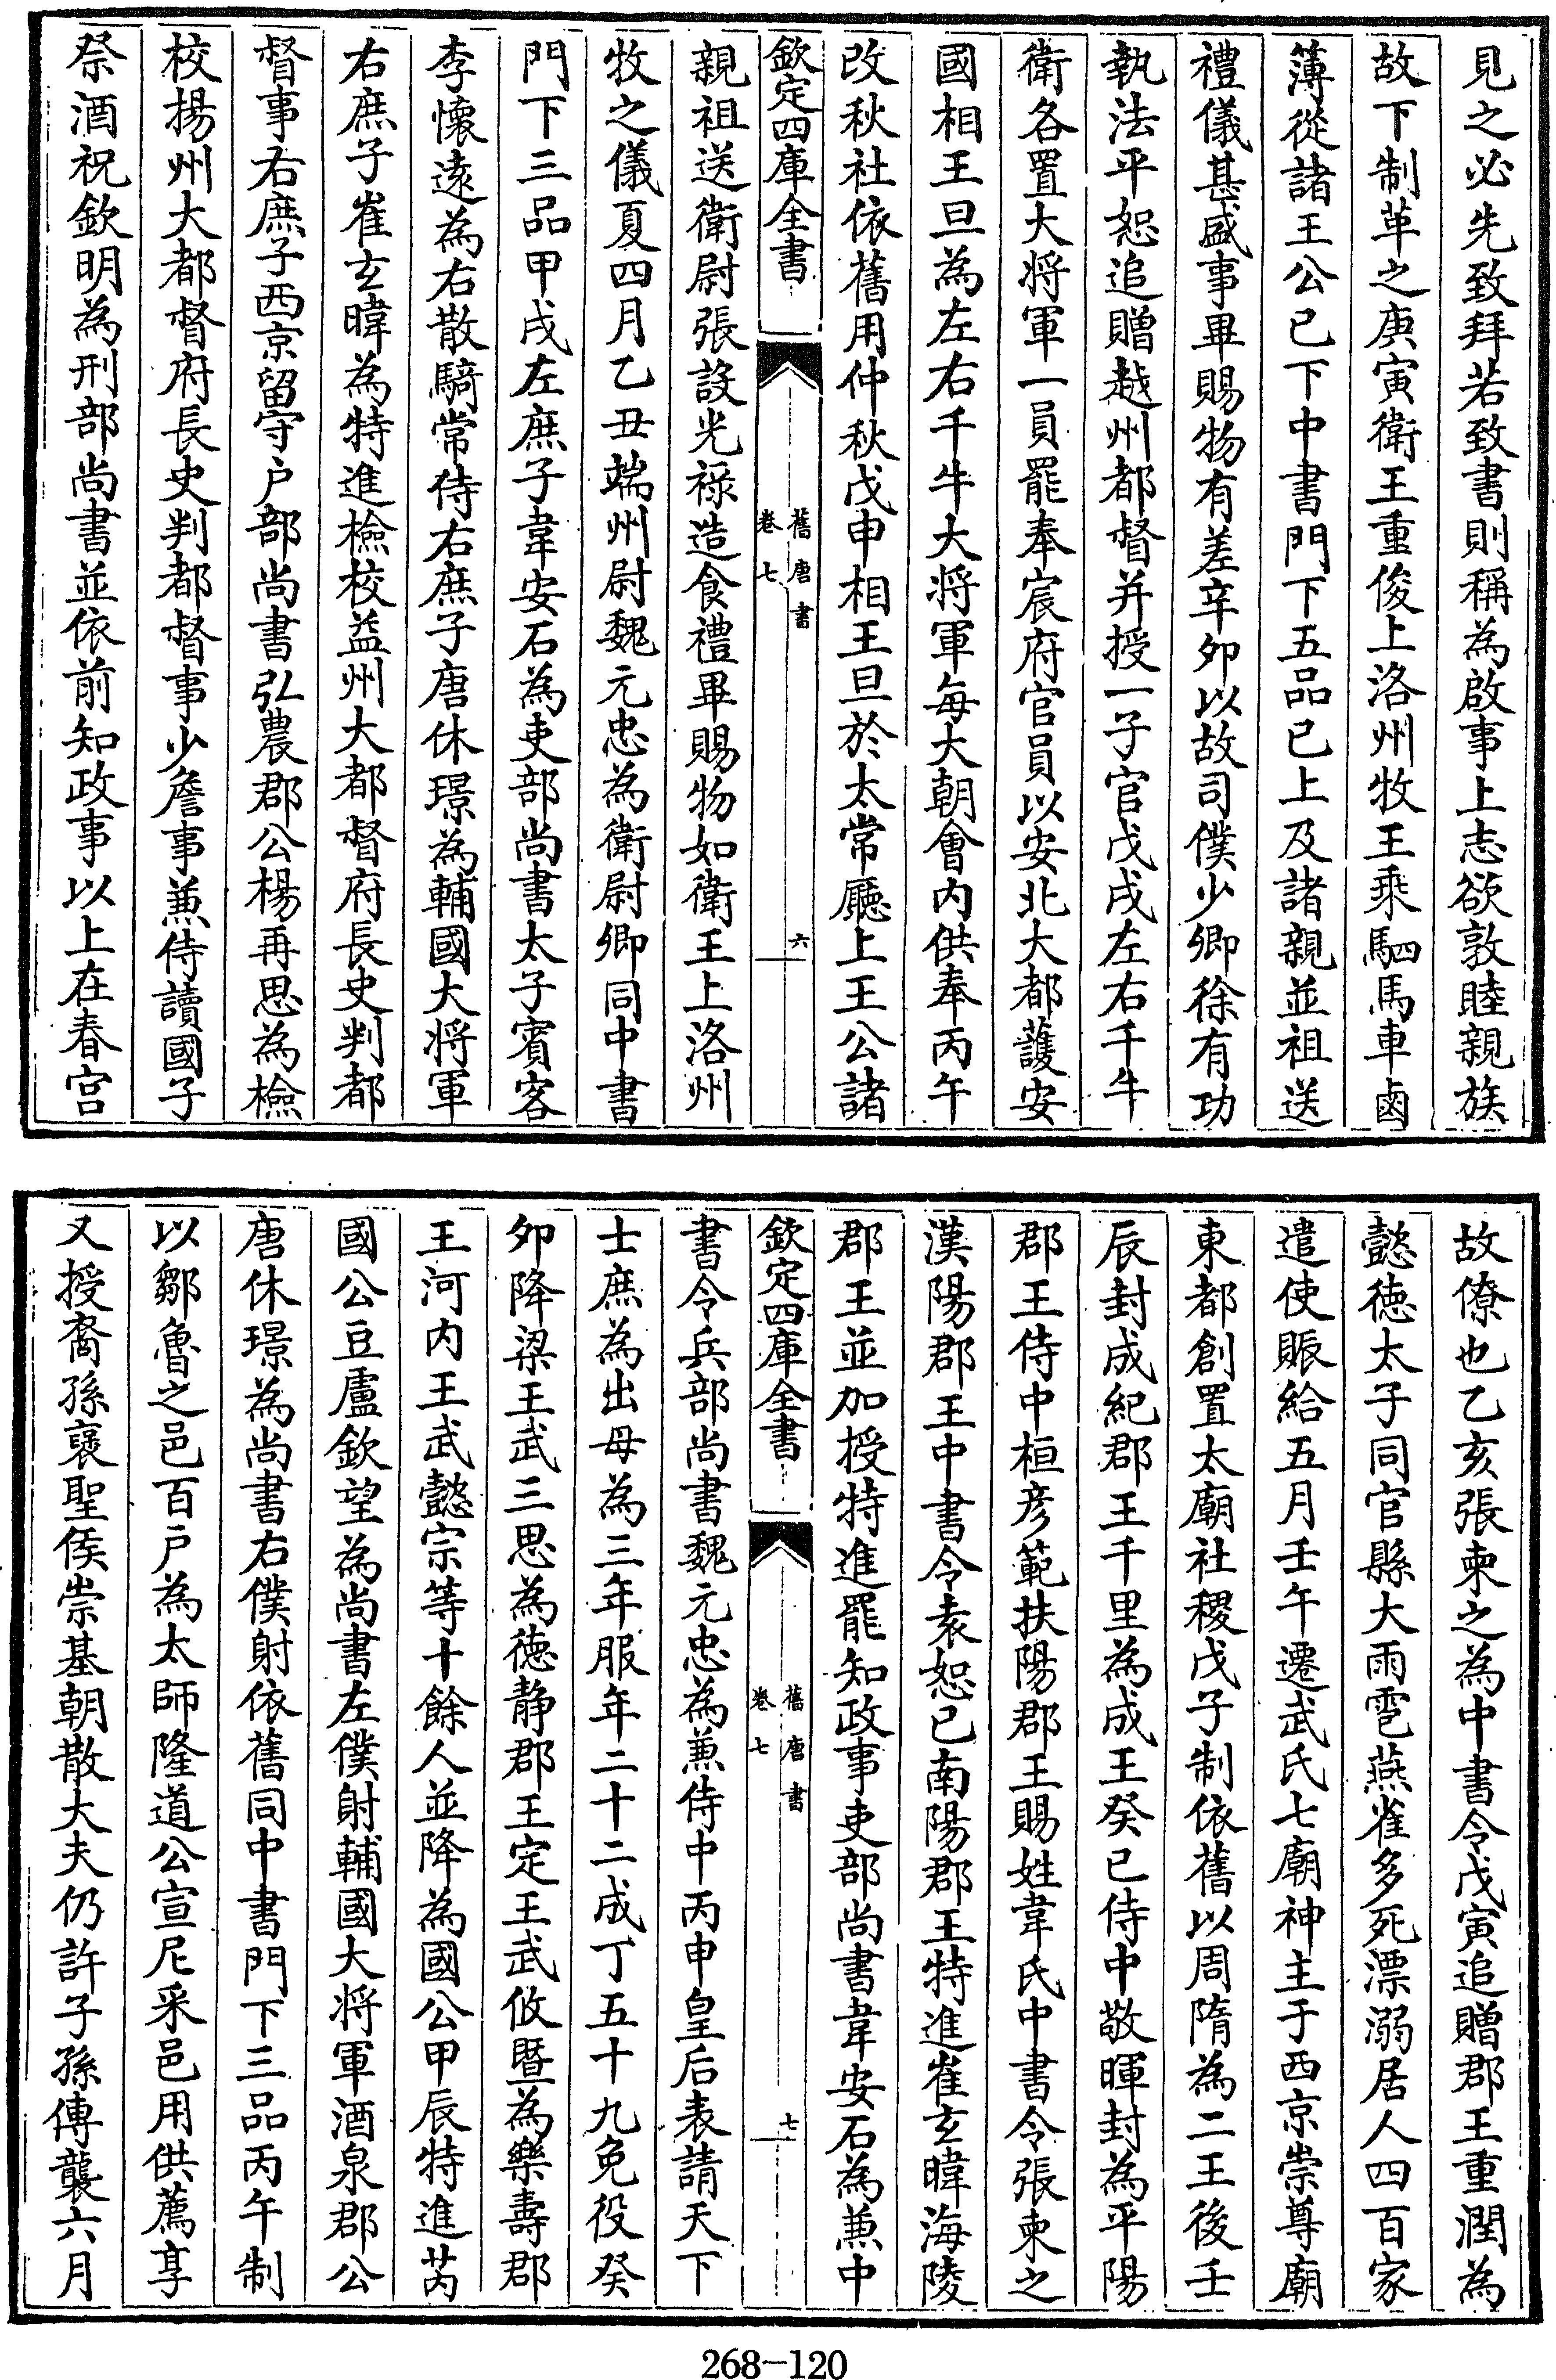 見之必先致拜若致書則稱為啟事上志欲敦睦親族
故下制革之庚寅衛王重俊上洛州牧王乘駟馬車鹵
薄從諸王公已下中書門下五品已上及諸親並祖送
禮儀甚盛事畢賜物有差辛夘以故司僕少卿徐有功
執法平恕追贈越州都督并授一子官戊戌左右千牛
衛各置大將軍一員罷奉宸府官員以安北大都護安
國相王旦為左右千牛大將軍每大朝會內供奉丙午
改秋社依舊用仲秋戊申相王旦於太常廳上王公諸
欽定四庫全書
舊唐書
卷七
六
親祖送衛尉張設光祿造食禮畢賜物如衛王上洛州
牧之儀夏四月乙丑端州尉魏元忠為衛尉卿同中書
門下三品甲戌左庶子韋安石為吏部尚書太子賓客
李懷遠為右散騎常侍右庶子唐休璟為輔國大將軍
右庶子崔玄暐為特進檢校益州大都督府長史判都
督事右庶子西京留守户部尚書弘農郡公楊再思為檢
校揚州大都督府長史判都督事少詹事兼侍讀國子
祭酒祝欽明為刑部尚書並依前知政事以上在春宫
故僚也乙亥張柬之為中書令戊寅追贈郡王重潤為
懿德太子同官縣大雨雹燕雀多死漂溺居人四百家
遣使賑給五月壬午遷武氏七廟神主于西京崇尊廟
東都創置太廟社稷戊子制依舊以周隋為二王後壬
辰封成紀郡王千里為成王癸巳侍中敬暉封為平陽
郡王侍中桓彦範扶陽郡王賜姓韋氏中書令張柬之
漢陽郡王中書令袁恕已南陽郡王特進崔玄暐海陵
郡王並加授特進罷知政事吏部尚書韋安石為兼中
欽定四庫全書
舊唐書
卷七
七
書令兵部尚書魏元忠為兼侍中丙申皇后表請天下
士庶為出母為三年服年二十二成丁五十九免役癸
夘降梁王武三思為德靜郡王定王武攸暨為樂壽郡
王河內王武懿宗等十餘人並降為國公甲辰特進芮
國公豆盧欽望為尚書左僕射輔國大將軍酒泉郡公
唐休璟為尚書右僕射依舊同中書門下三品丙午制
以鄒魯之邑百户為太師隆道公宣尼采邑用供薦享
又授裔孫褒聖侯崇基朝散大夫仍許子孫傳襲六月
268-120